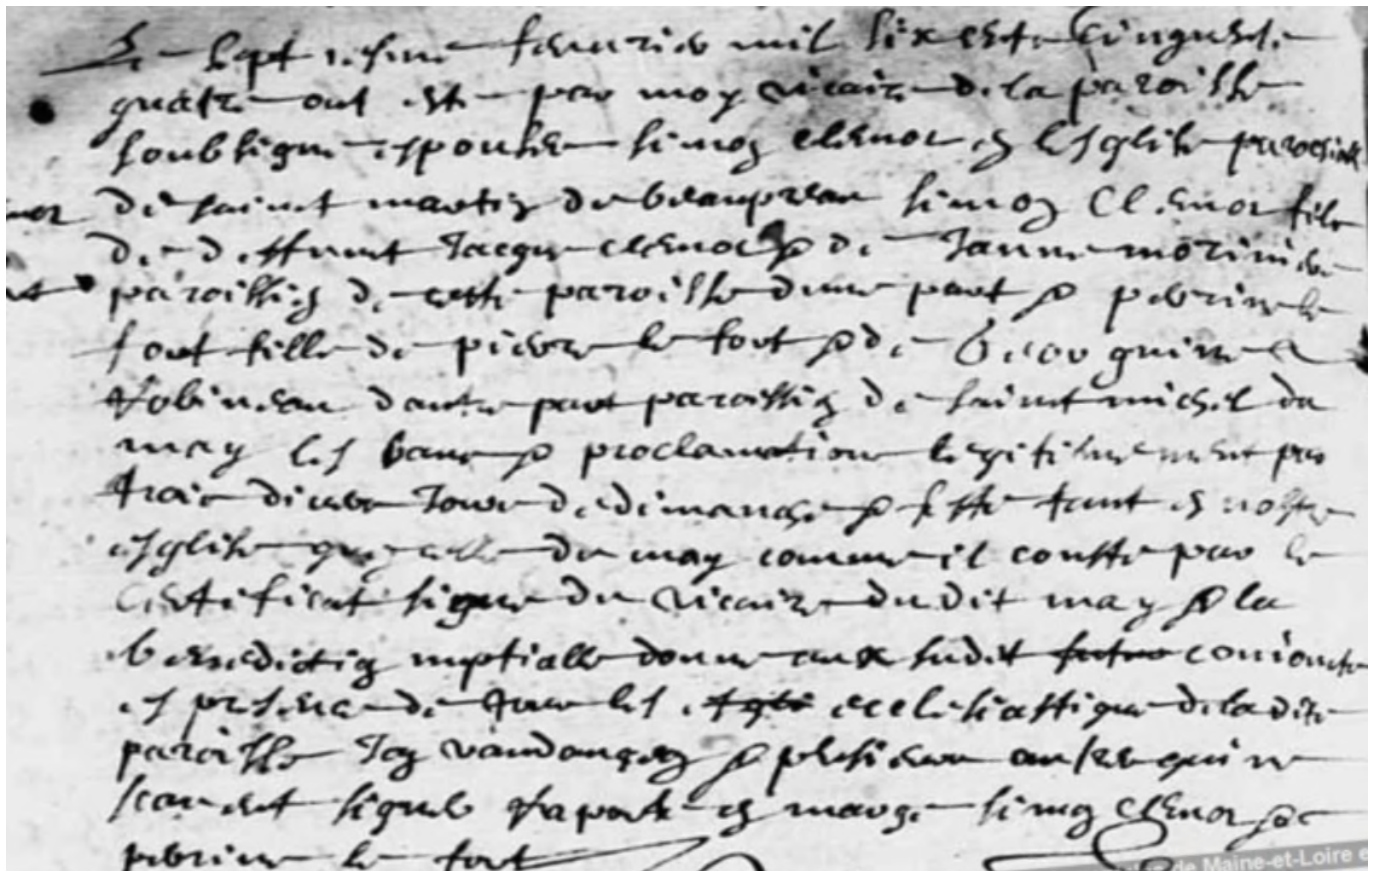 Le sept iesme febvrier mil six cents cinquante
quatre ont este par moy vicaire de la paroisse
soubsigne espouse simon clemot en lesglise paroissiale
de sainct martin de beaupreau simon Clemot fils
de deffunct Jacque clemot & de Janne moriniere
paroissien de ceste paroisse dune part & perrine le
fort fille de pierre le fort & de
Robineau dautre part paroissien de sainct michel du
may les bans & proclamations legitimement par
trois divers Jours de dimanche & feste tant en nostre
esglise que celle du may comme il conste par le
Certificat signe du vicaire dudit may & la
benediction nuptialle donne aux susdit futur conioincts
es presence de tous les ecclesiastique de ladite
paroisse Jan vandangeon & plusieurs autre qui ne
scavent signer en marge simon Clemot &
perrine le fort
de Maine-et-Loire e